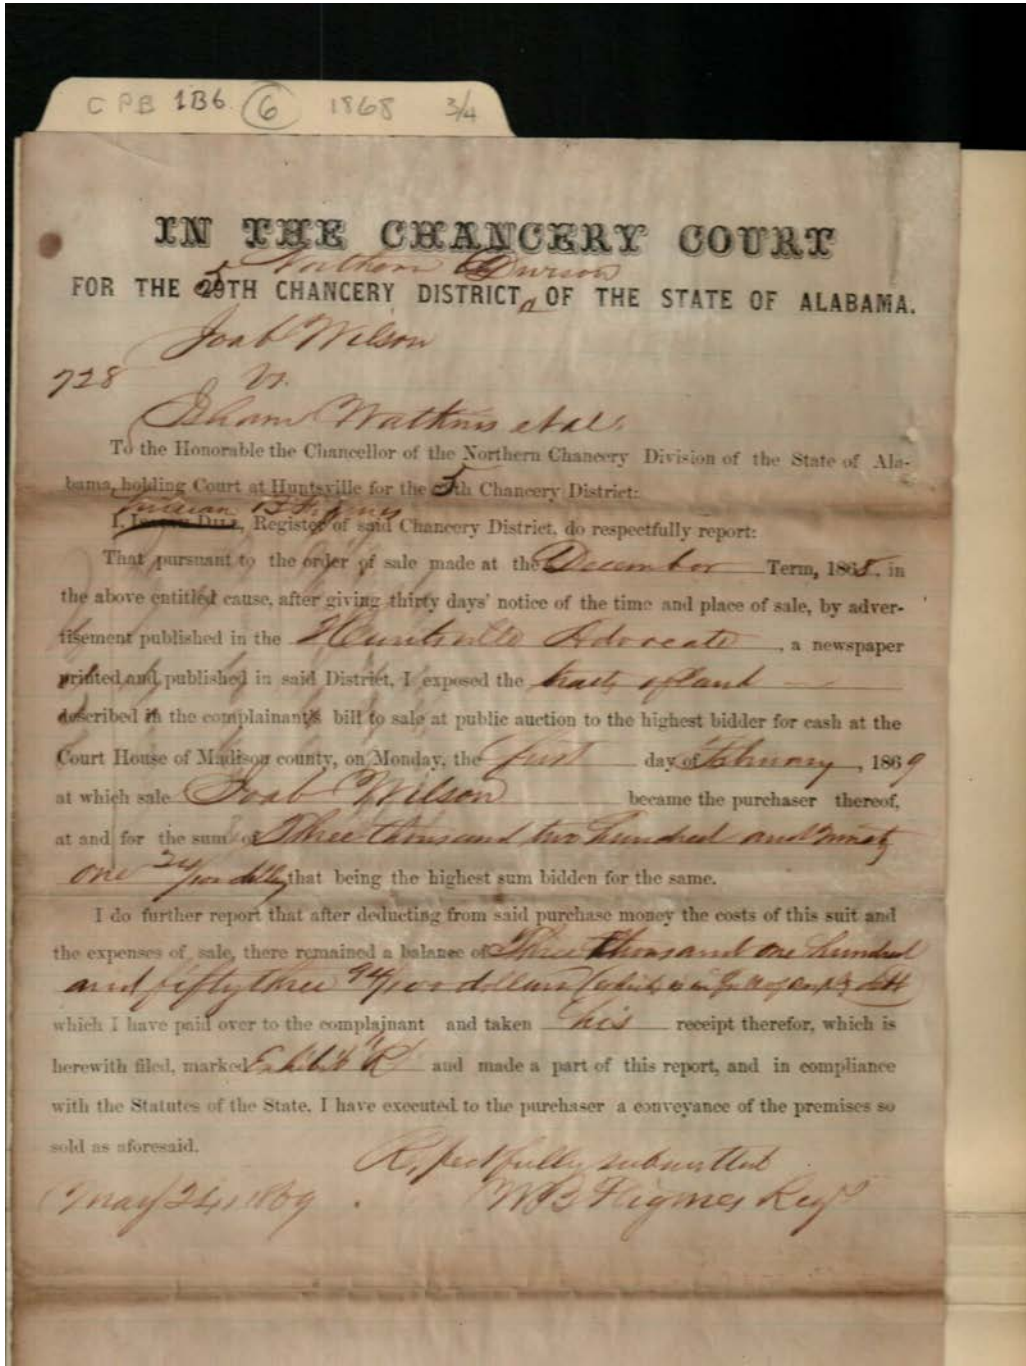 CPB 1B6 6 1868 3/4
IN THE CHANCERY COURT
Northern Division
FOR THE 5TH CHANCERY DISTRICT, OF THE STATE OF ALABAMA.
Joab Wilson
728 vs.
Isham Watkins et al.
To the Honorable the Chancellor of the Northern Chancery Division of the State of Ala-
bama, holding Court at Huntsville for the 5th Chancery District:
William B Figures
I, Register of said Chancery District, do respectfully report:
That pursuant to the order of sale made at the December Term, 1868, in
the above entitled cause, after giving thirty days' notice of the time and place of sale, by adver-
tisement published in the Huntsville Advocate, a newspaper
printed and published in said District, I exposed the tracts of land
described in the complainant's bill to sale at public auction to the highest bidder for cash at the
Court House of Madison county, on Monday, the first day of February, 1869
at which sale Joab Wilson became the purchaser thereof,
at and for the sum of Three thousand two hundred and ninety
one 24/100 dolls, that being the highest sum bidden for the same.
I do further report that after deducting from said purchase money the costs of this suit and
the expenses of sale, there remained a balance of Three thousand one hundred
and fifty three 94/100 dollars
which I have paid over to the complainant and taken his receipt therefor, which is
herewith filed, marked Exhibit "R" and made a part of this report, and in compliance
with the Statutes of the State, I have executed to the purchaser a conveyance of the premises so
sold as aforesaid.
Respectfully submitted
May 24, 1869. W B Figures Regr